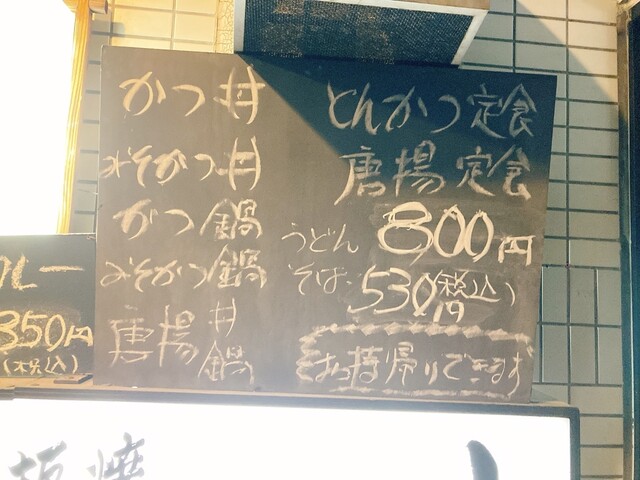 かつ丼
みそかつ丼
かつ鍋
みそかつ鍋
唐揚丼
鍋
とんかつ定食
唐揚定食
800円
うどん
そば
530円(税込)
お持帰りできます
カレー
350円
(税込)
焼